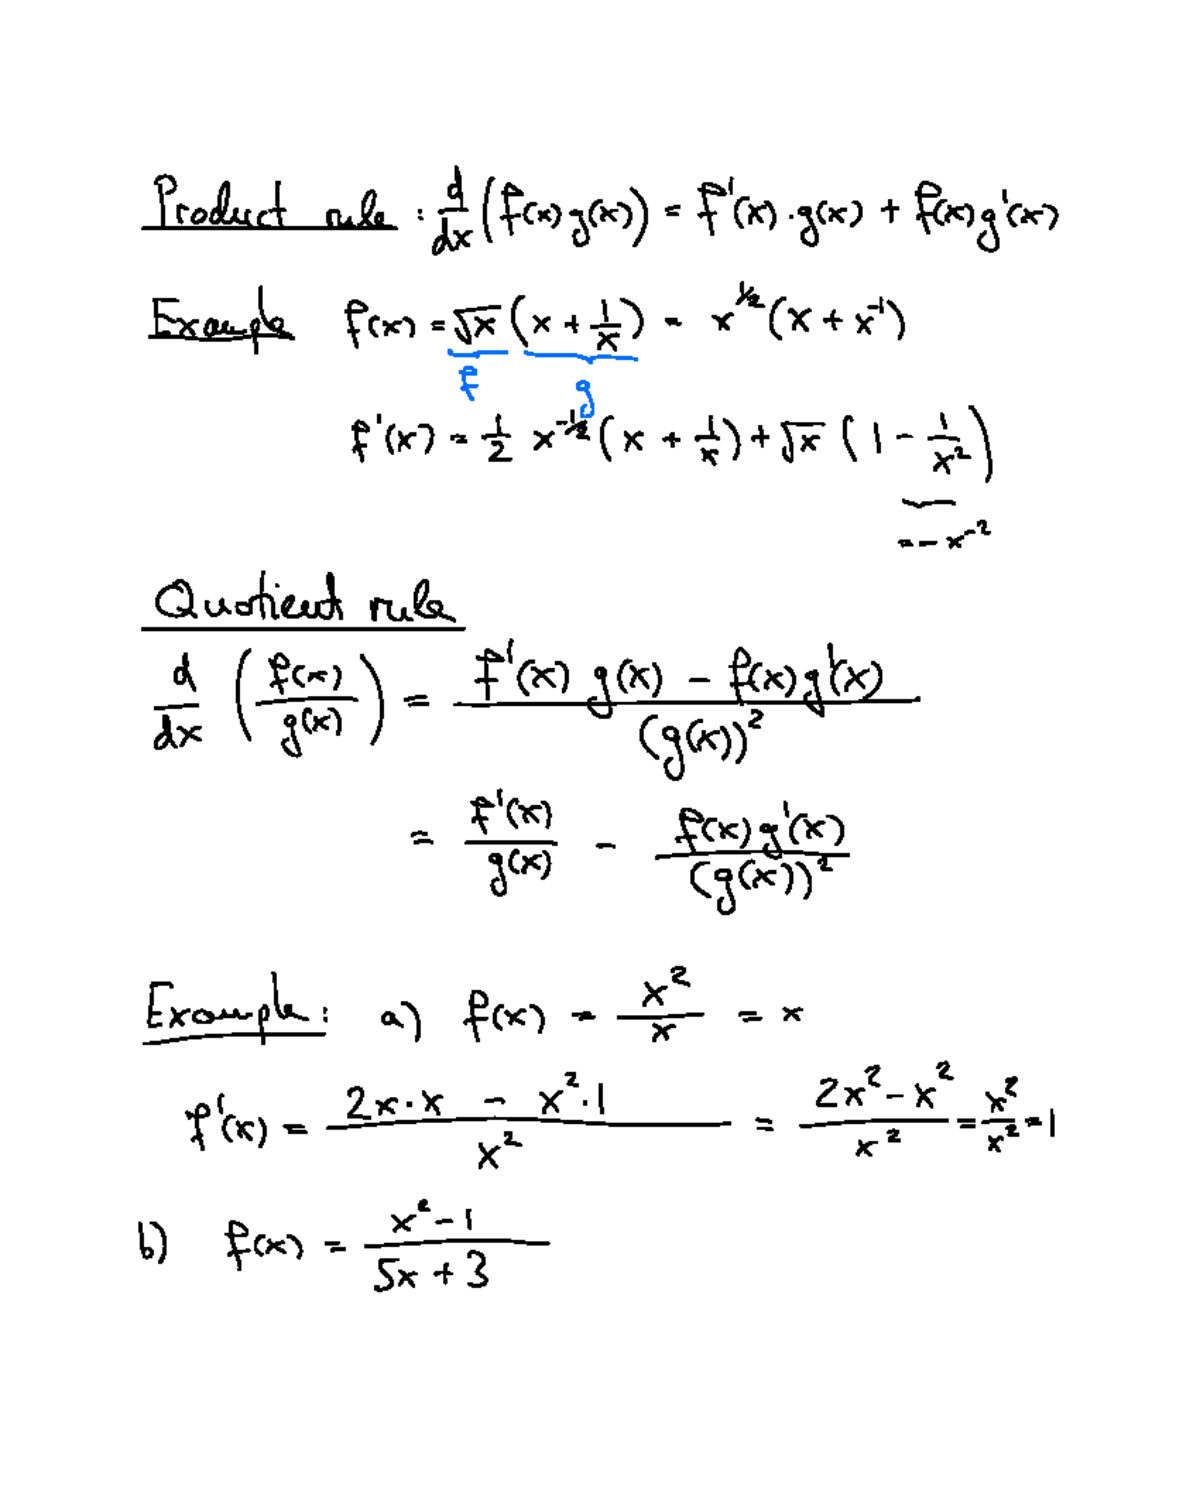 Product rule : d/dx (f(x) g(x)) = f'(x) · g(x) + f(x) g'(x)
Example f(x) = √x (x + 1/x) = x^(1/2) (x + x^(-1))
f g
f'(x) = 1/2 x^(-1/2) (x + 1/x) + √x (1 - 1/x²)
= - x^(-2)
Quotient rule
d/dx (f(x)/g(x)) = (f'(x) g(x) - f(x) g'(x)) / (g(x))²
= f'(x)/g(x) - f(x) g'(x)/(g(x))²
Example: a) f(x) = x²/x = x
f'(x) = (2x·x - x²·1)/x² = (2x² - x²)/x² = x²/x² = 1
b) f(x) = (x² - 1)/(5x + 3)